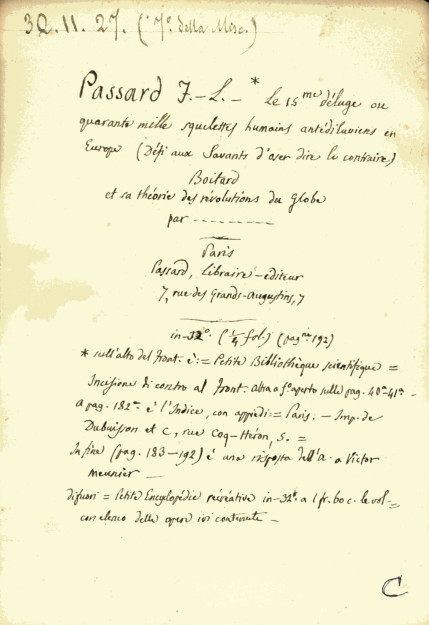 30.11.27. (: 7º. della Misc.)
Passard F.-L. - * Le 15me déluge ou
quarante mille squelettes humains antédiluviens en
Europe (Défi aux Savants d'oser dire le contraire)
Boitard
et sa théorie des révolutions du Globe
par ---------
Paris
Passard, Libraire-éditeur
7, rue des Grands-Augustins, 7
in-32º. (1/4 fol.) (pagne 192)
* sull'alto del front. è := Petite Bibliothèque scientifique =
Incisione di contro al front. altra a fº. aperto sulle pag. 40a-41a -
a pag. 182a è l'Indice, con appiedi := Paris. - Imp. de
Dubuisson et C, rue Coq-Héron, 5. =
In fine (pag. 183-192) è una risposta dell'a. a Victor
meunier -
difuori = Petite Encyclopédie récréative in-32º. a 1 fr. 60 c. le vol =
con elenco delle opere ivi contenute -
C